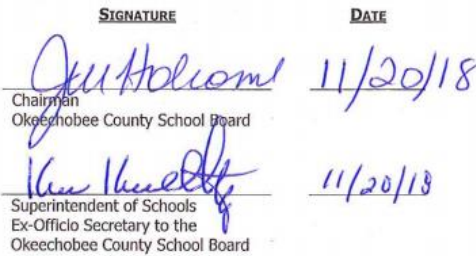 SIGNATURE DATE
Jill Holcomb 11/20/18
Chairman
Okeechobee County School Board
Ken Kenworthy 11/20/18
Superintendent of Schools
Ex-Officio Secretary to the
Okeechobee County School Board